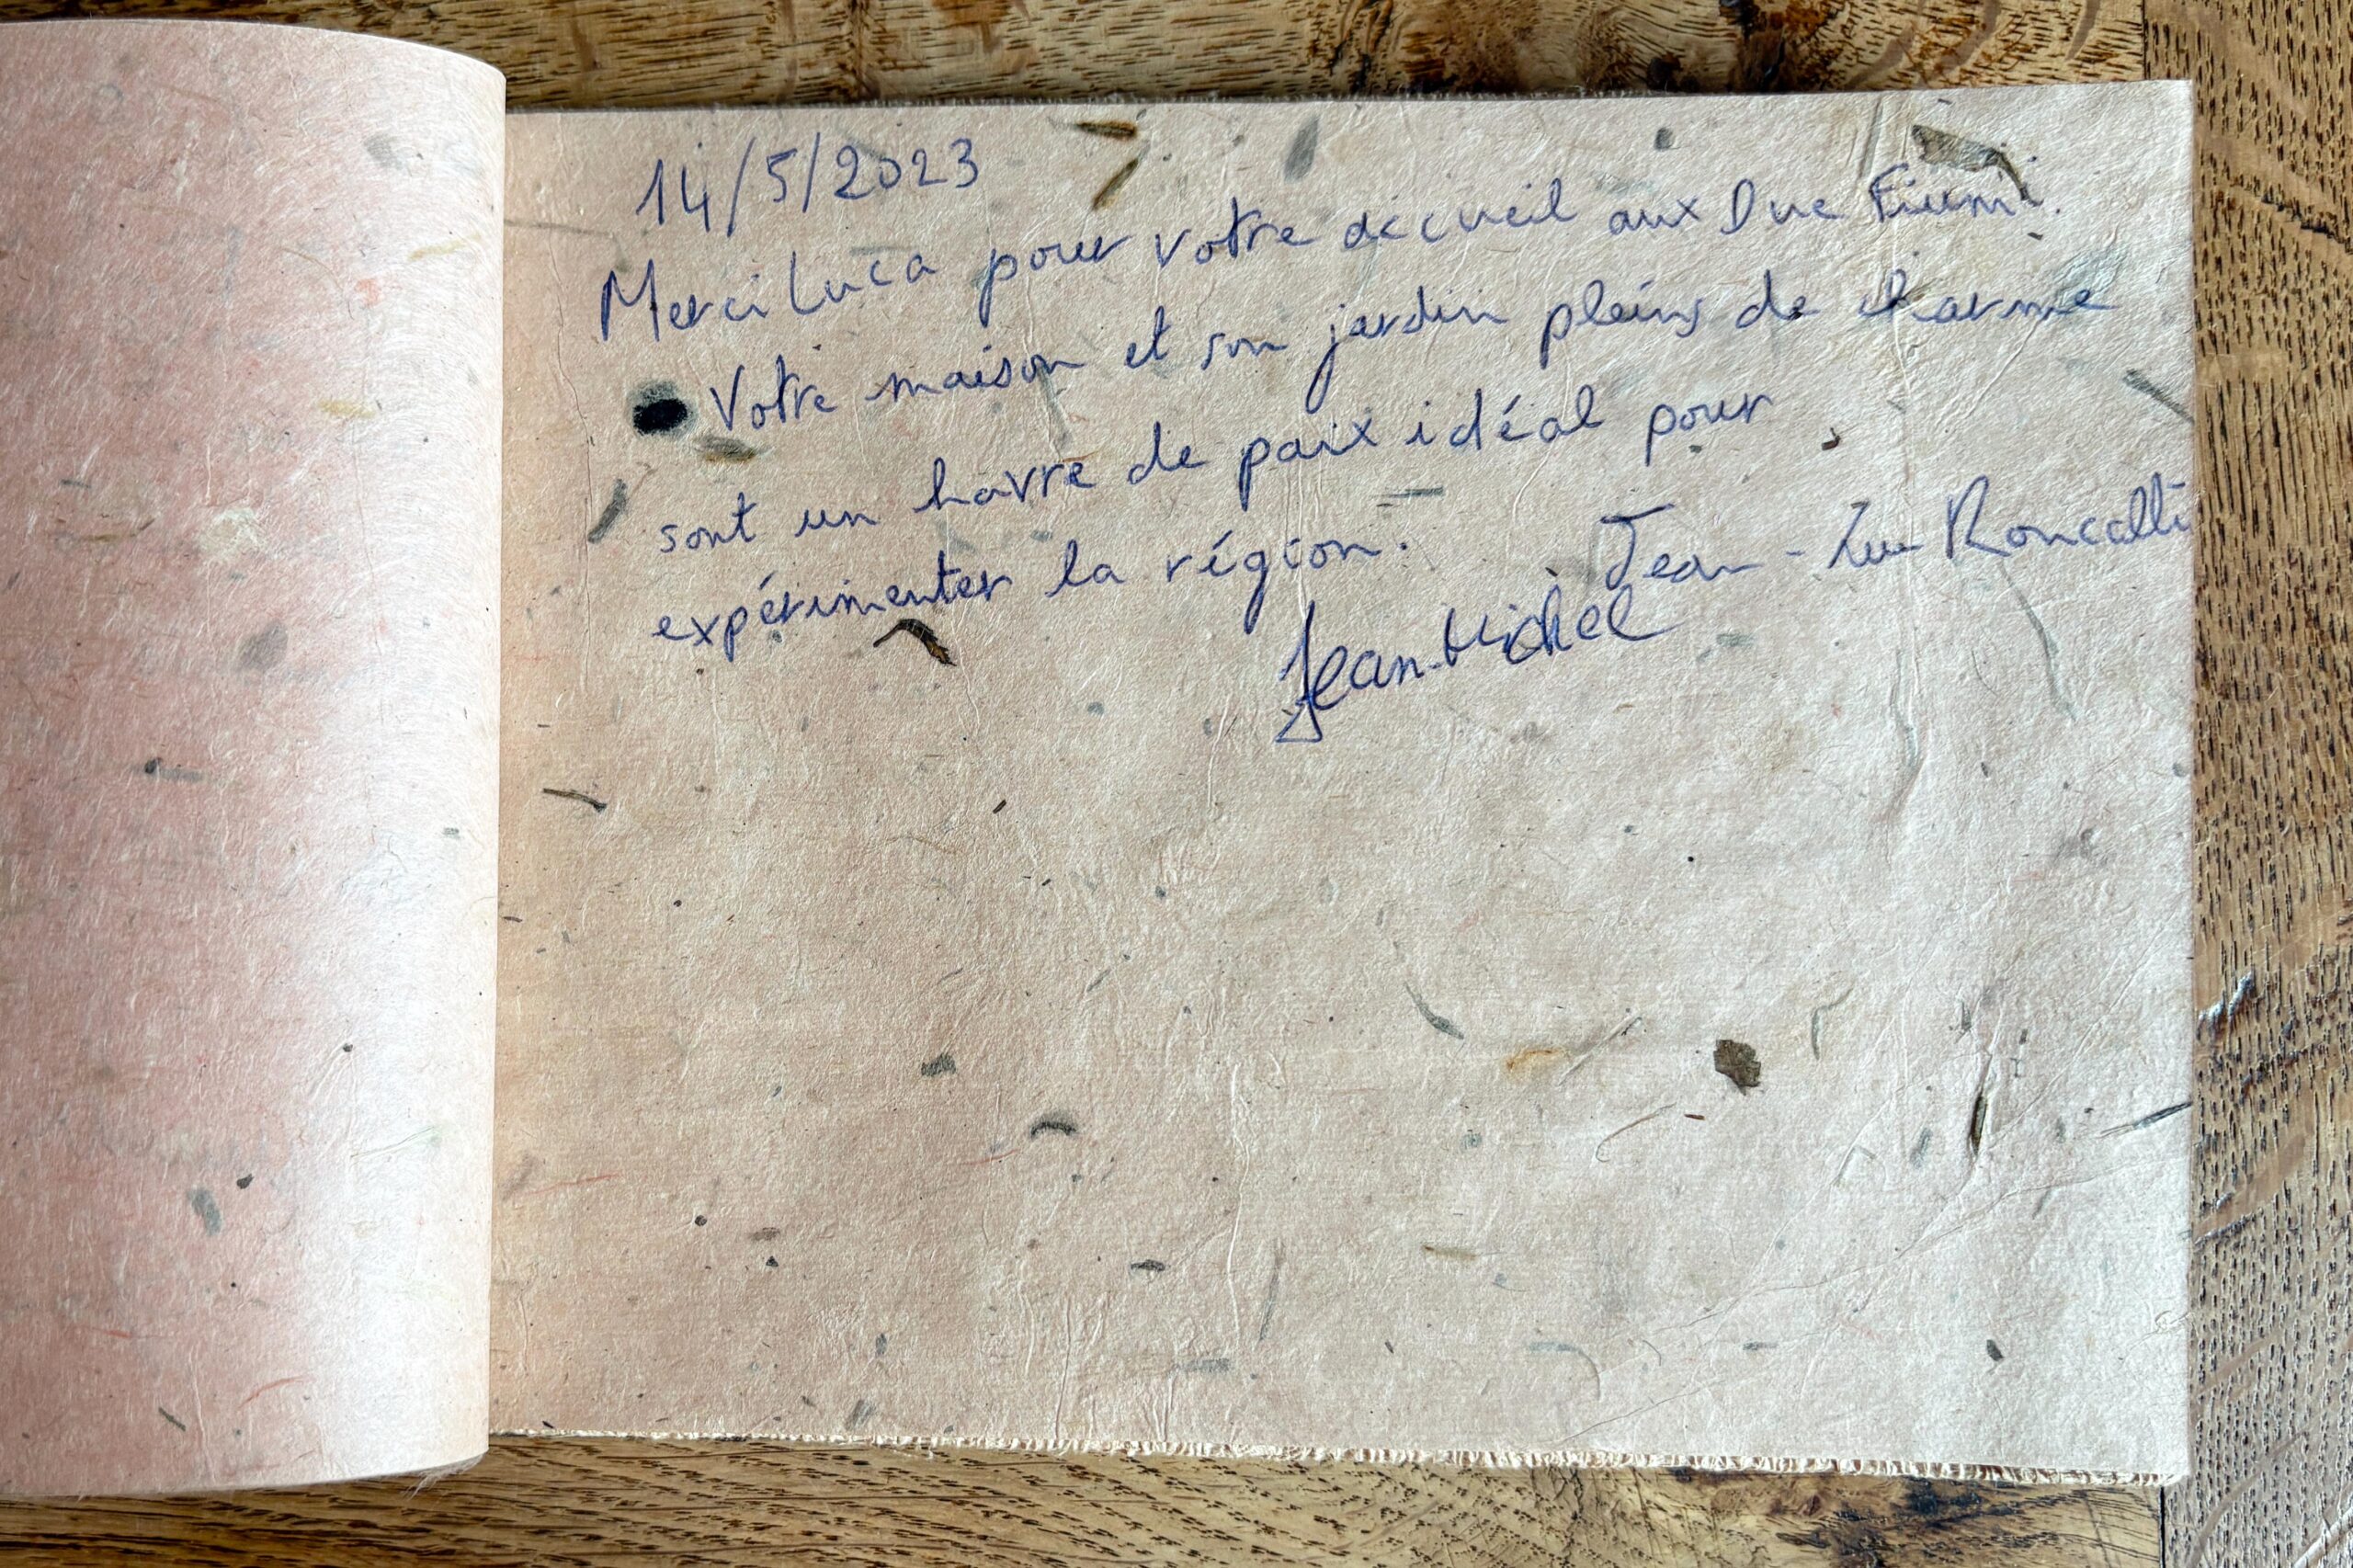 14/5/2023
Merci Luca pour votre accueil aux Due Fiumi.
Votre maison et son jardin pleins de charme
sont un havre de paix idéal pour
expérimenter la région.
Jean-Luc Roncalli
Jean-Michel